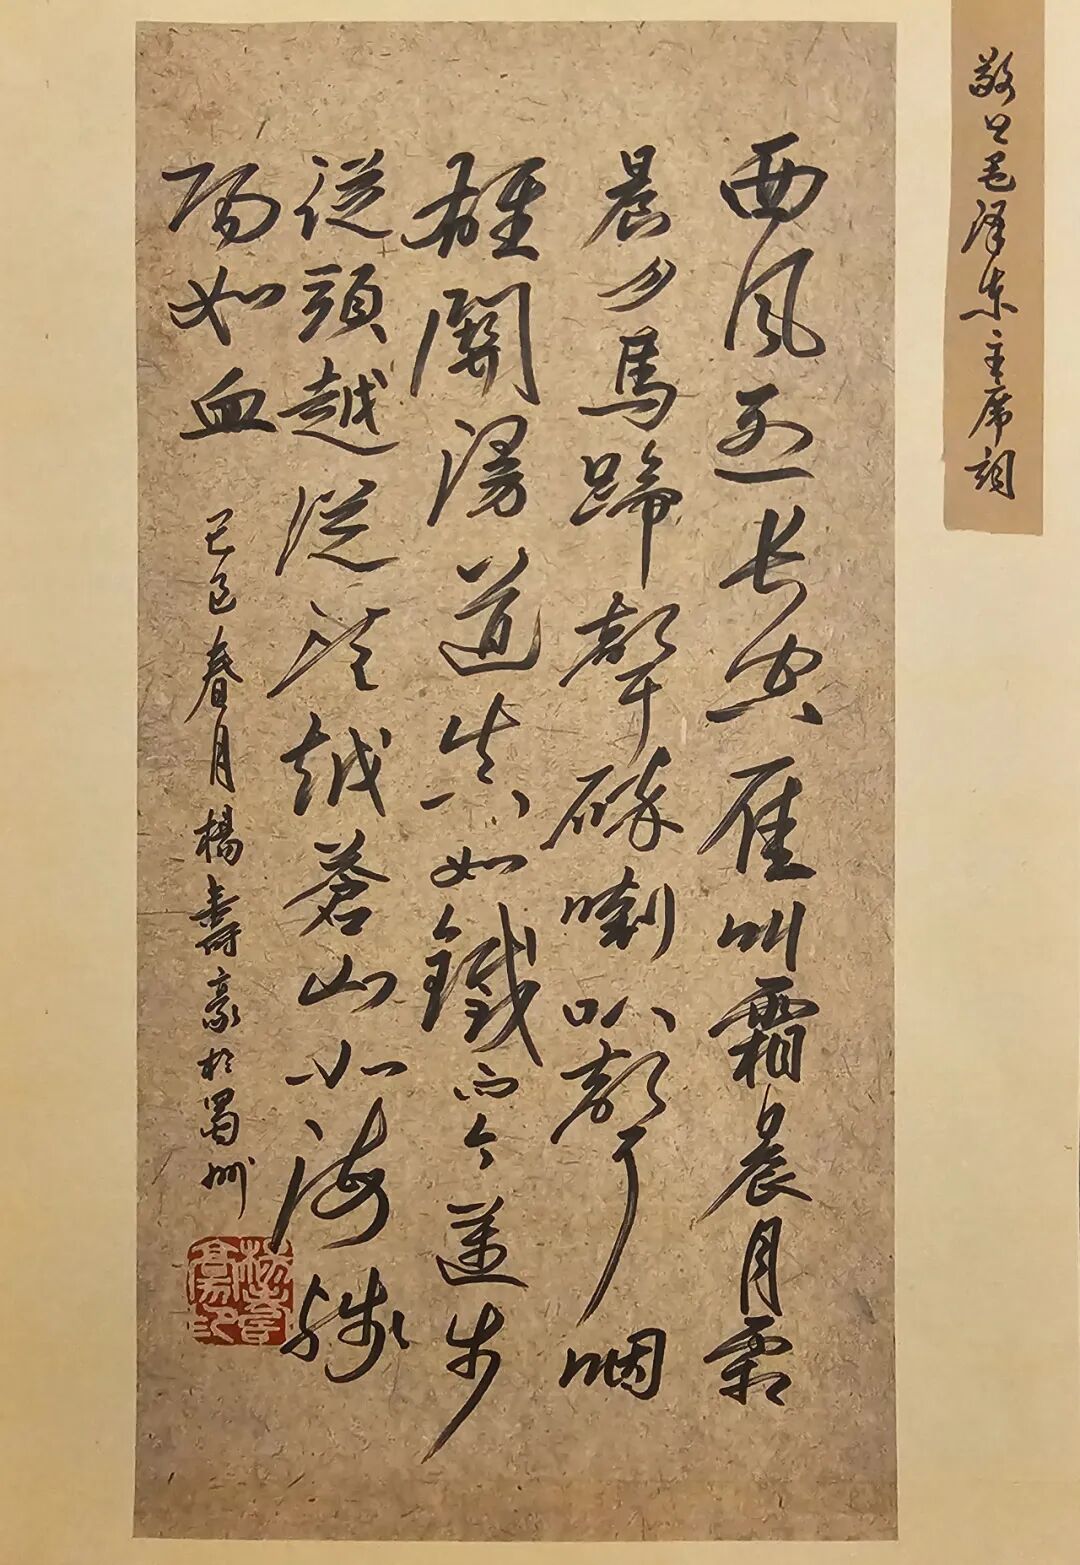 敬书毛泽东主席詞
西風烈長空雁叫霜晨月霜
晨月馬蹄聲碎喇叭聲咽
雄關漫道真如鐵而今邁步
從頭越從頭越蒼山如海殘
陽如血
乙巳春月楊壽豪於蜀州